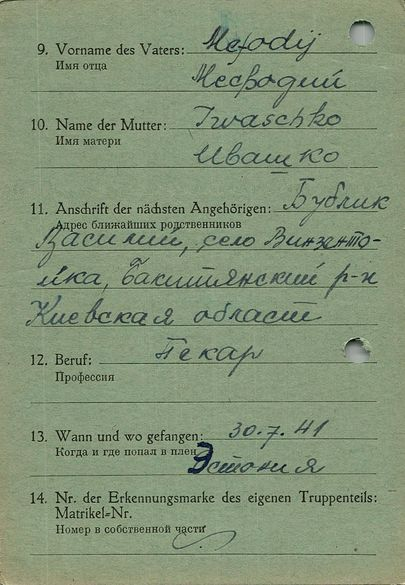 9. Vorname des Vaters: Mefodij
Имя отца
Месродий
10. Name der Mutter: Iwaschko
Имя матери
Ивашко
11. Anschrift der nächsten Angehörigen: Бублик
Адрес ближайших родственников
Василий, село Винзенто-
йка, Бакшпянский р-н
Киевская област
12. Beruf: Пекар
Профессия
13. Wann und wo gefangen: 30.7.41
Когда и где попал в плен
Эстония
14. Nr. der Erkennungsmarke des eigenen Truppenteils:
Matrikel=Nr.
Номер в собственной части